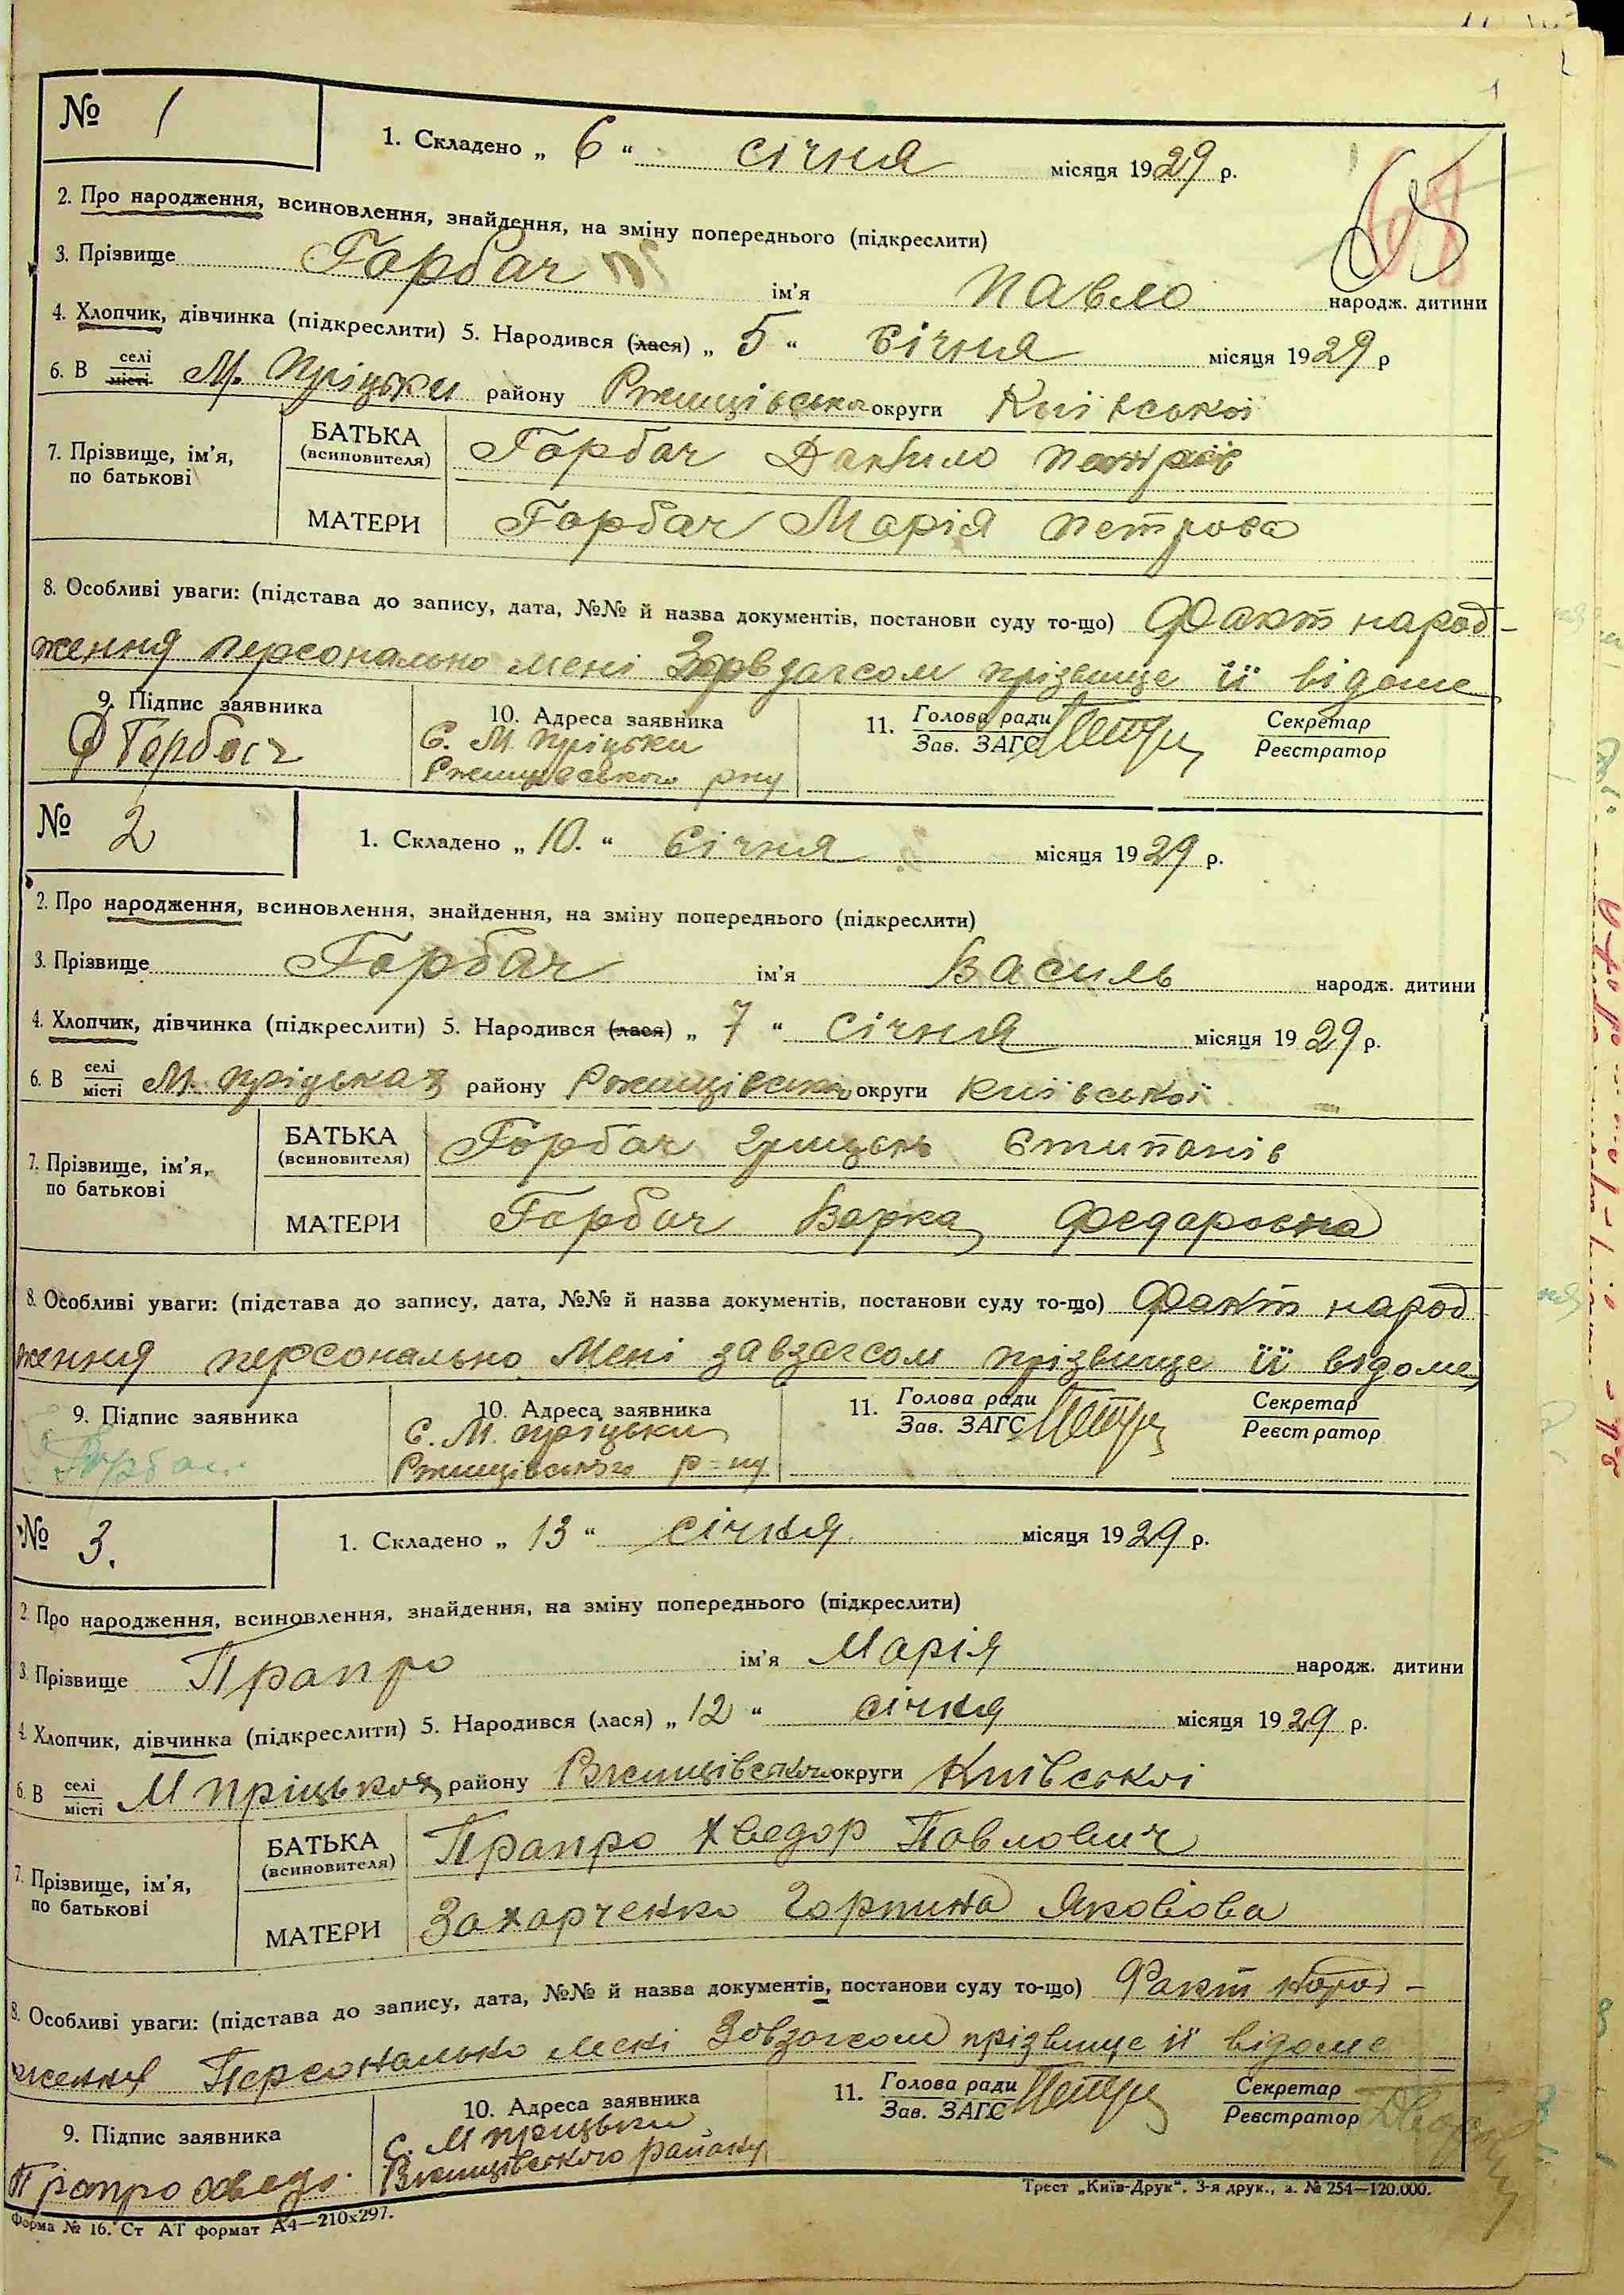 1
№ 1
1. Складено „ 6 “ січня місяця 1929 р.
2. Про народження, всиновлення, знайдення, на зміну попереднього (підкреслити)
3. Прізвище Горбач ім'я Павло народж. дитини
4. Хлопчик, дівчинка (підкреслити) 5. Народився (лася) „ 5 “ січня місяця 1929 р
6. В селі місті М. Пріцьки району Ржищівсько округи Київської
7. Прізвище, ім'я, по батькові
БАТЬКА (всиновителя) Горбач Данило Петрів
МАТЕРИ Горбач Марія Петрова
8. Особливі уваги: (підстава до запису, дата, №№ й назва документів, постанови суду то-що) Факт народ-
ження персонально мені Завзагсом прізвище її відоме
9. Підпис заявника 10. Адреса заявника 11. Голова ради Зав. ЗАГС Секретар Реєстратор
Горбач С. М. Пріцьки
Ржищівського р-ну
№ 2
1. Складено „ 10. “ січня місяця 1929 р.
2. Про народження, всиновлення, знайдення, на зміну попереднього (підкреслити)
3. Прізвище Горбач ім'я Василь народж. дитини
4. Хлопчик, дівчинка (підкреслити) 5. Народився (лася) „ 7 “ січня місяця 1929 р.
6. В селі місті М. Пріцьках району Ржищівсько округи Київської
7. Прізвище, ім'я, по батькові
БАТЬКА (всиновителя) Горбач Грицько Стипанів
МАТЕРИ Горбач Варка Федаровна
8. Особливі уваги: (підстава до запису, дата, №№ й назва документів, постанови суду то-що) Факт народ
ження персонально мені завзагсом прізвище її відоме
9. Підпис заявника 10. Адреса заявника 11. Голова ради Зав. ЗАГС Секретар Реєстратор
Горбач С. М. Пріцьки
Ржищівського р-ну
№ 3.
1. Складено „ 13 “ січня місяця 1929 р.
2. Про народження, всиновлення, знайдення, на зміну попереднього (підкреслити)
3. Прізвище Прапро ім'я Марія народж. дитини
4. Хлопчик, дівчинка (підкреслити) 5. Народився (лася) „ 12 “ січня місяця 1929 р.
6. В селі місті М Пріцьках району Вжищівсько округи Київскої
7. Прізвище, ім'я, по батькові
БАТЬКА (всиновителя) Прапро Хведор Павлович
МАТЕРИ Захарченко Горпина Яковова
8. Особливі уваги: (підстава до запису, дата, №№ й назва документів, постанови суду то-що) Факт народ-
ження Персонально мені Завзагсом прізвище її відоме
9. Підпис заявника 10. Адреса заявника 11. Голова ради Зав. ЗАГС Секретар Реєстратор
Прапро Хведо. С. М Прицьки
Вжищівського району
Трест „Київ-Друк“. 3-я друк., з. № 254—120.000.
Форма № 16. Ст АТ формат А4—210х297.